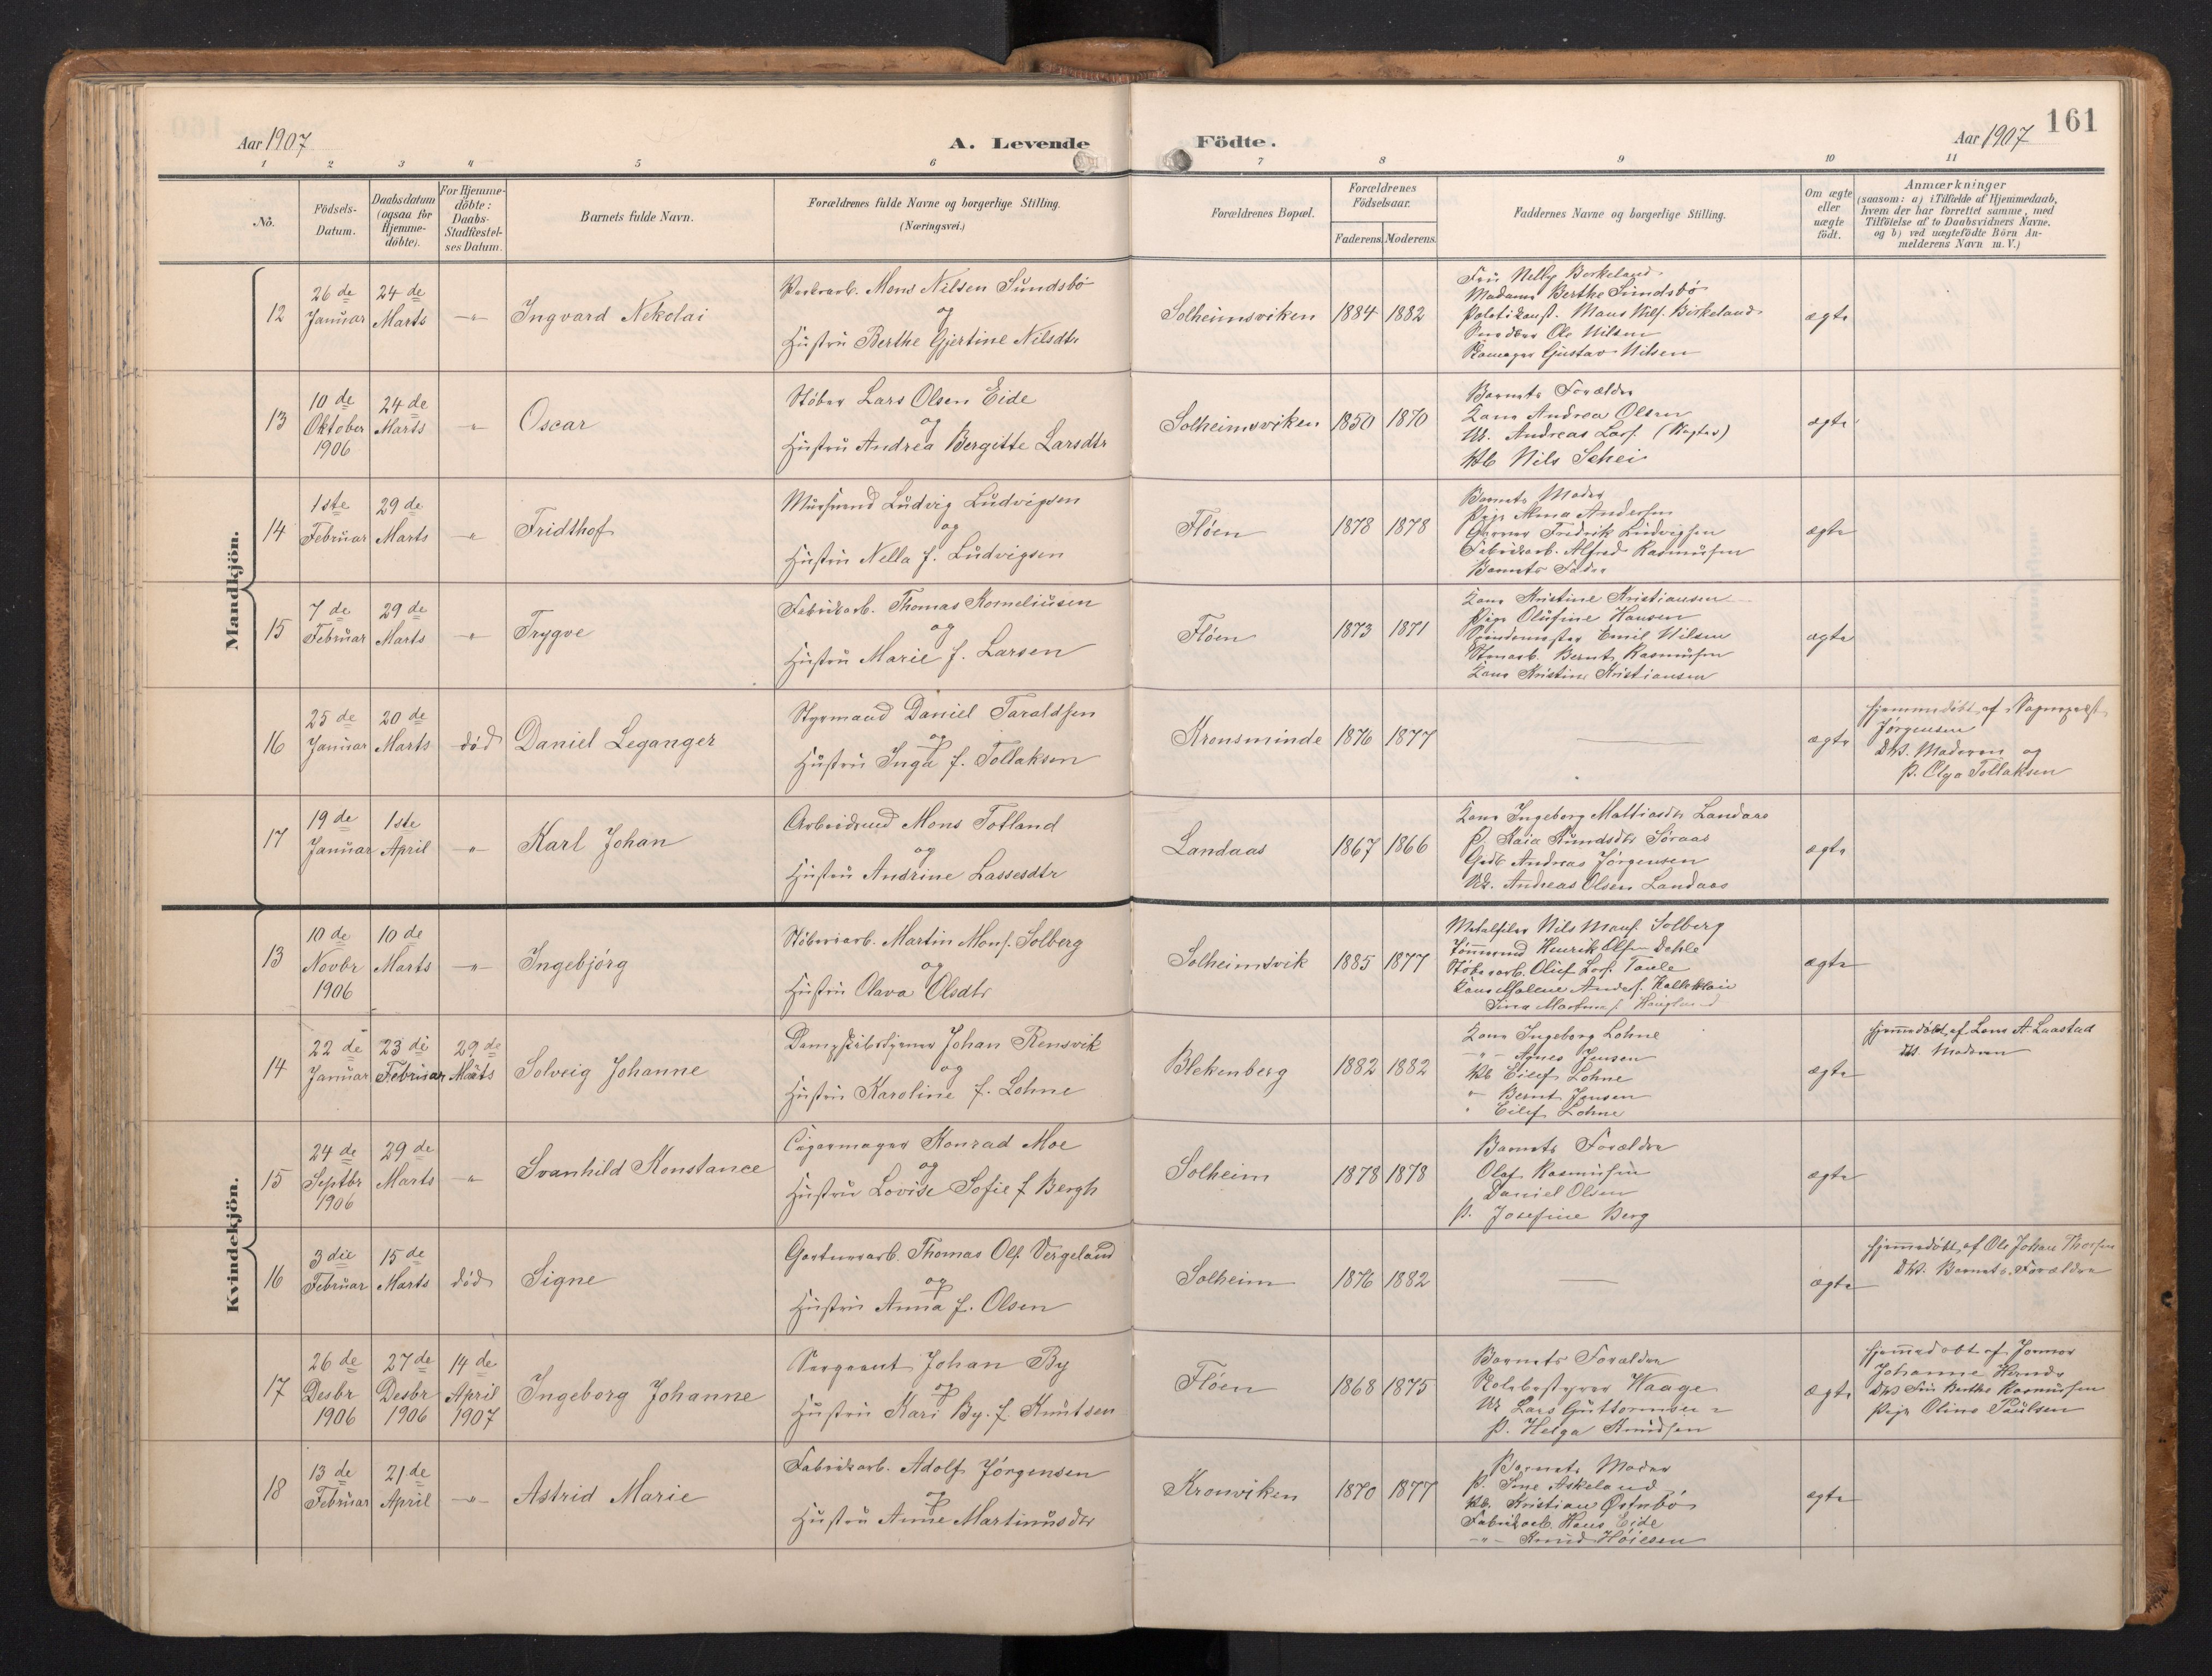 Aar 1907
A. Levende Födte.
Aar 1907
161
1 2 3 4 5 6 7 8 9 10 11
No.
Födsels-
Datum.
Daabsdatum
(ogsaa for
Hjemme-
döbte).
For Hjemme-
döbte:
Daabs-
Stadfæstel-
ses Datum.
Barnets fulde Navn.
Forældrenes fulde Navne og borgerlige Stilling.
(Næringsvei.)
Forældrenes Bopæl.
Forældrenes
Födselsaar.
Faderens. Moderens.
Faddernes Navne og borgerlige Stilling.
Om ægte
eller
uægte
födt.
Anmærkninger
(saasom: a) i Tilfælde af Hjemmedaab,
hvem der har forrettet samme, med
Tilföielse af to Daabsvidners Navne.
og b) ved uægtefödte Börn An-
melderens Navn m. V.)
Mandkjön.
12
26de
Januar
24de
Marts
-"-
Ingvard Nikolai
Mons Nilsen Sundsbö
og
Hustru Berthe Gjertine Nilsdtr
Solheimsviken
1884 1882
Fru Nelly Birkeland
Madame Berthe Sundsbö
Politikonst. Mons Nils. Birkeland
Ole Nilsen
Gustav Nilsen
ægte
13
10de
Oktober
1906
24de
Marts
-"-
Oscar
Støber Lars Olsen Eide
og
Hustru Andrea Bergitte Larsdtr
Solheimsviken
1850 1870
Barnets Forældre
Kone Andrea Olsen
Uk. Andreas Lars.
Nils Schei
ægte
14
1ste
Februar
29de
Marts
-"-
Fridthof
Mursvend Ludvig Ludvigsen
og
Hustru Nella f. Ludvigsen
Fløen
1878 1878
Barnets Moder
Pige Anna Andersen
Fredrik Ludvigsen
Fabrikarb. Alfred Rasmussen
Barnets Fader
ægte
15
7de
Februar
29de
Marts
-"-
Trygve
Fabrikarb. Thomas Korneliusen
og
Hustru Marie f. Larsen
Fløen
1873 1871
Kone Kristine Kristiansen
Pige Olufine Hansen
Spindemester Emil Nilsen
Bernt Rasmussen
Kone Kristine Kristiansen
ægte
16
25de
Januar
20de
Marts
död
Daniel Leganger
Styrmand Daniel Taraldsen
og
Hustru Inga f. Tollaksen
Kronsminde
1876 1877
ægte
Hjemmedöbt af Sogneprest
Jørgensen
Dbv. Moderen og
P. Olga Tollaksen
17
19de
Januar
1ste
April
-"-
Karl Johan
Arbeidsmd Mons Totland
og
Hustru Andrine Lassesdtr
Landaas
1867 1866
Kone Ingeborg Mattiasdtr Landaas
P. Kaia Søraas
Gdb. Andreas Jörgensen
Uk. Andreas Olsen Landaas
ægte
Kvindekjön.
13
10de
Novbr
1906
10de
Marts
-"-
Ingebjörg
Støberiarb. Martin Mons. Solberg
og
Hustru Olava Olsdtr
Solheimsvik
1885 1877
Metalfiler Nils Mons. Solberg
Tömmermd Henrik Olsen Dahle
Støberarb. Oluf Lars. Taule
Kone Malene Anders.
ægte
14
22de
Januar
23de
Februar
29de
Marts
Solveig Johanne
Dampskibstjener Johan Rensvik
og
Hustru Karoline f. Lohne
Blekenberg
1882 1882
Kone Ingeborg Lohne
-"- Agnes Jensen
Eilef Lohne
" Bernt Jensen
" Eilef Lohne
ægte
Hjemmedöbt af A. Laastad
Dbv. Moderen
15
24de
Septbr
1906
29de
Marts
-"-
Svanhild Konstance
Cigarmager Konrad Moe
og
Hustru Lovise Sofie f. Bergh
Solheim
1878 1878
Barnets Forældre
Olaf Rasmussen
Daniel Olsen
P. Josefine Berg
ægte
16
3die
Februar
15de
Marts
död
Signe
Gartnerarb. Thomas Ols. Vergeland
og
Hustru Anna f. Olsen
Solheim
1876 1882
ægte
Hjemmedöbt af Ole Johan Thorsen
Dbv. Barnets Forældre
17
26de
Desbr
1906
27de
Desbr
1906
14de
April
1907
Ingeborg Johanne
Sergeant Johan By
og
Hustru Kari By. f. Knutsen
Fløen
1868 1875
Barnets Forældre
Skolebestyrer Waage
Uk Lars Guttormsen
P. Helga Knudsen
Ægte
Hjemmedöbt af Jormor
Johanne
Dbv. Fru Berthe Rasmussen
Pige Oline Paulsen
18
13de
Februar
21de
April
-"-
Astrid Marie
Fabrikarb. Adolf Jörgensen
og
Hustru Anne Martinusdtr
Kronviken
1870 1877
Barnets Moder
P. Sine Askeland
Kristian Østrebö
Fabrikarb. Hans Eide
-"- Knud Høiesen
ægte